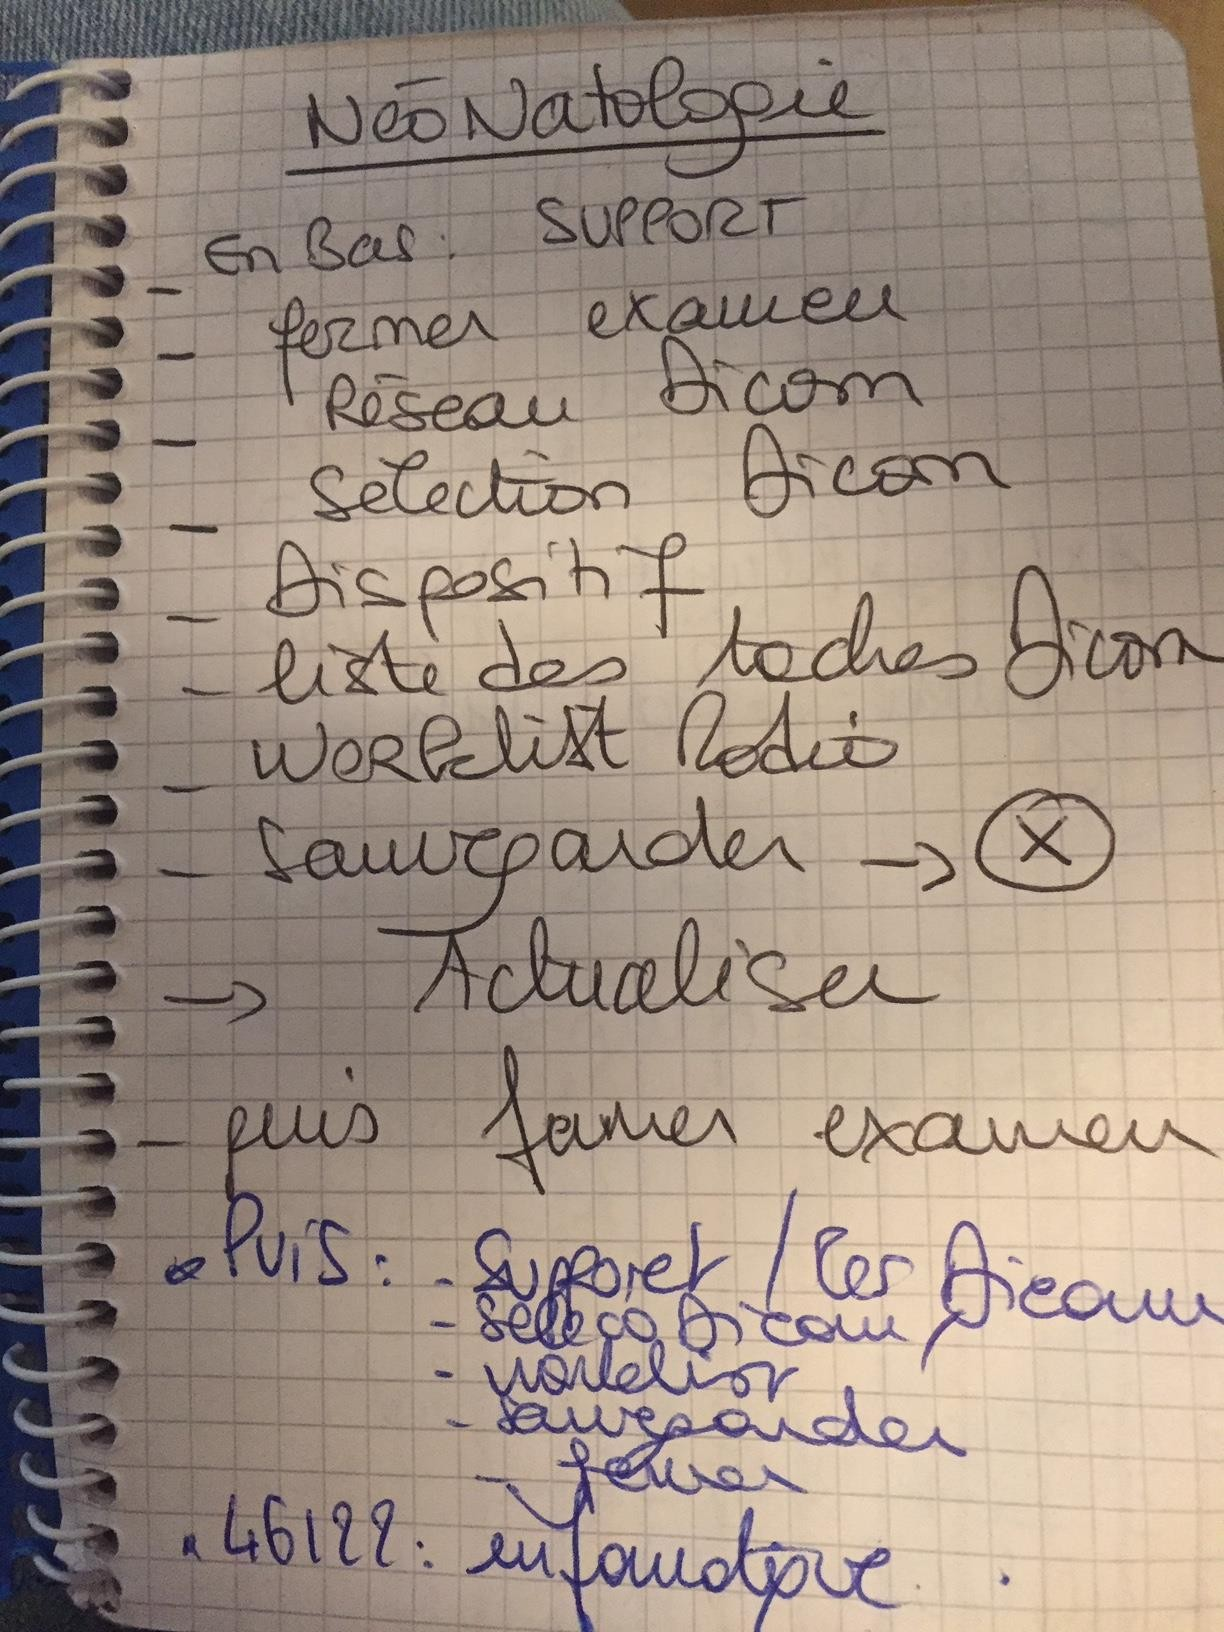 NéoNatologie
En Bas : SUPPORT
- fermer examen
- Réseau Dicom
- Sélection Dicom
- Dispositif
- liste des taches Dicom
- WORKlist Radio
- Sauvegarder → X
→ Actualiser
- puis fermer examen
• PUIS : - Support / Dicom
- Dicom
- worklist
- sauvegarder
- fermer
• 46122 : informatique.